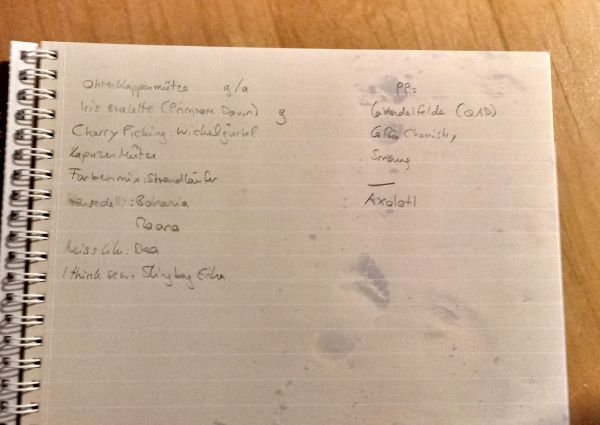 Ohrenklappenmütze a/a
Iris (Primrose Dawn) g
Cherry Picking: Wickelgürtel
Kapuzenmütze
Farbenmix: Strandläufer
Bahania
Moana
Dea
I think sew: Slingbag Erika
PP:
Lavendelfelde (QAD)
Chemistry
—
Axolotl